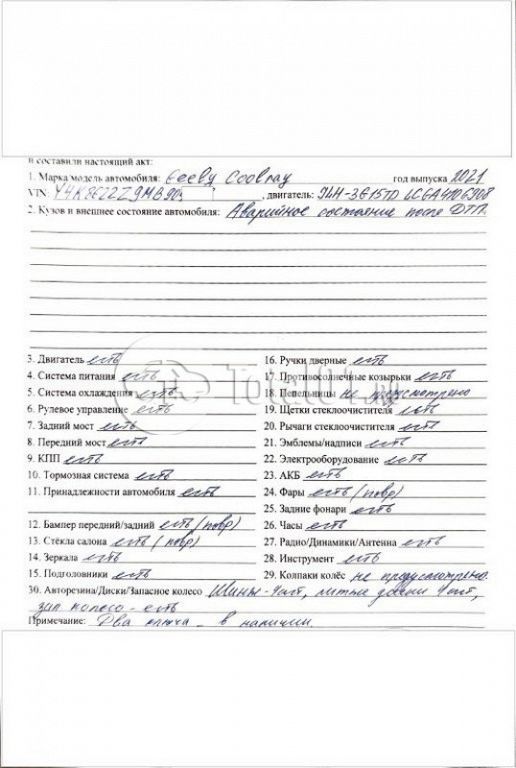 и составили настоящий акт:
1. Марка модель автомобиля: Geely Coolray год выпуска 2021
VIN: Y4K8622Z9MB903 , двигатель: JLH-3G15TD LC6A4106908
2. Кузов и внешнее состояние автомобиля: Аварийное состояние после ДТП.
3. Двигатель есть
16. Ручки дверные есть
4. Система питания есть
17. Противосолнечные козырьки есть
5. Система охлаждения есть
18. Пепельницы не предусмотрено
6. Рулевое управление есть
19. Щетки стеклоочистителя есть
7. Задний мост есть
20. Рычаги стеклоочистителя есть
8. Передний мост есть
21. Эмблемы/надписи есть
9. КПП есть
22. Электрооборудование есть
10. Тормозная система есть
23. АКБ есть
11. Принадлежности автомобиля есть
24. Фары есть (повр)
25. Задние фонари есть
12. Бампер передний/задний есть (повр)
26. Часы есть
13. Стёкла салона есть (повр)
27. Радио/Динамики/Антенна есть
14. Зеркала есть
28. Инструмент есть
15. Подголовники есть
29. Колпаки колёс не предусмотрено.
30. Авторезина/Диски/Запасное колесо Шины-4шт, литые диски 4шт,
зап колесо - есть
Примечание: Два ключа - в наличии.